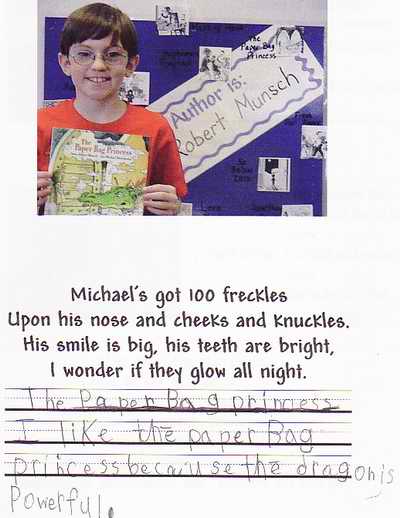 The
Paper Bag
Princess
Author is:
Robert Munsch
The
Paper Bag
Princess
Love
Michael's got 100 freckles
Upon his nose and cheeks and knuckles.
His smile is big, his teeth are bright,
I wonder if they glow all night.
The Paper Bag princess
I like the paper Bag
princess because the dragon is
Powerful.